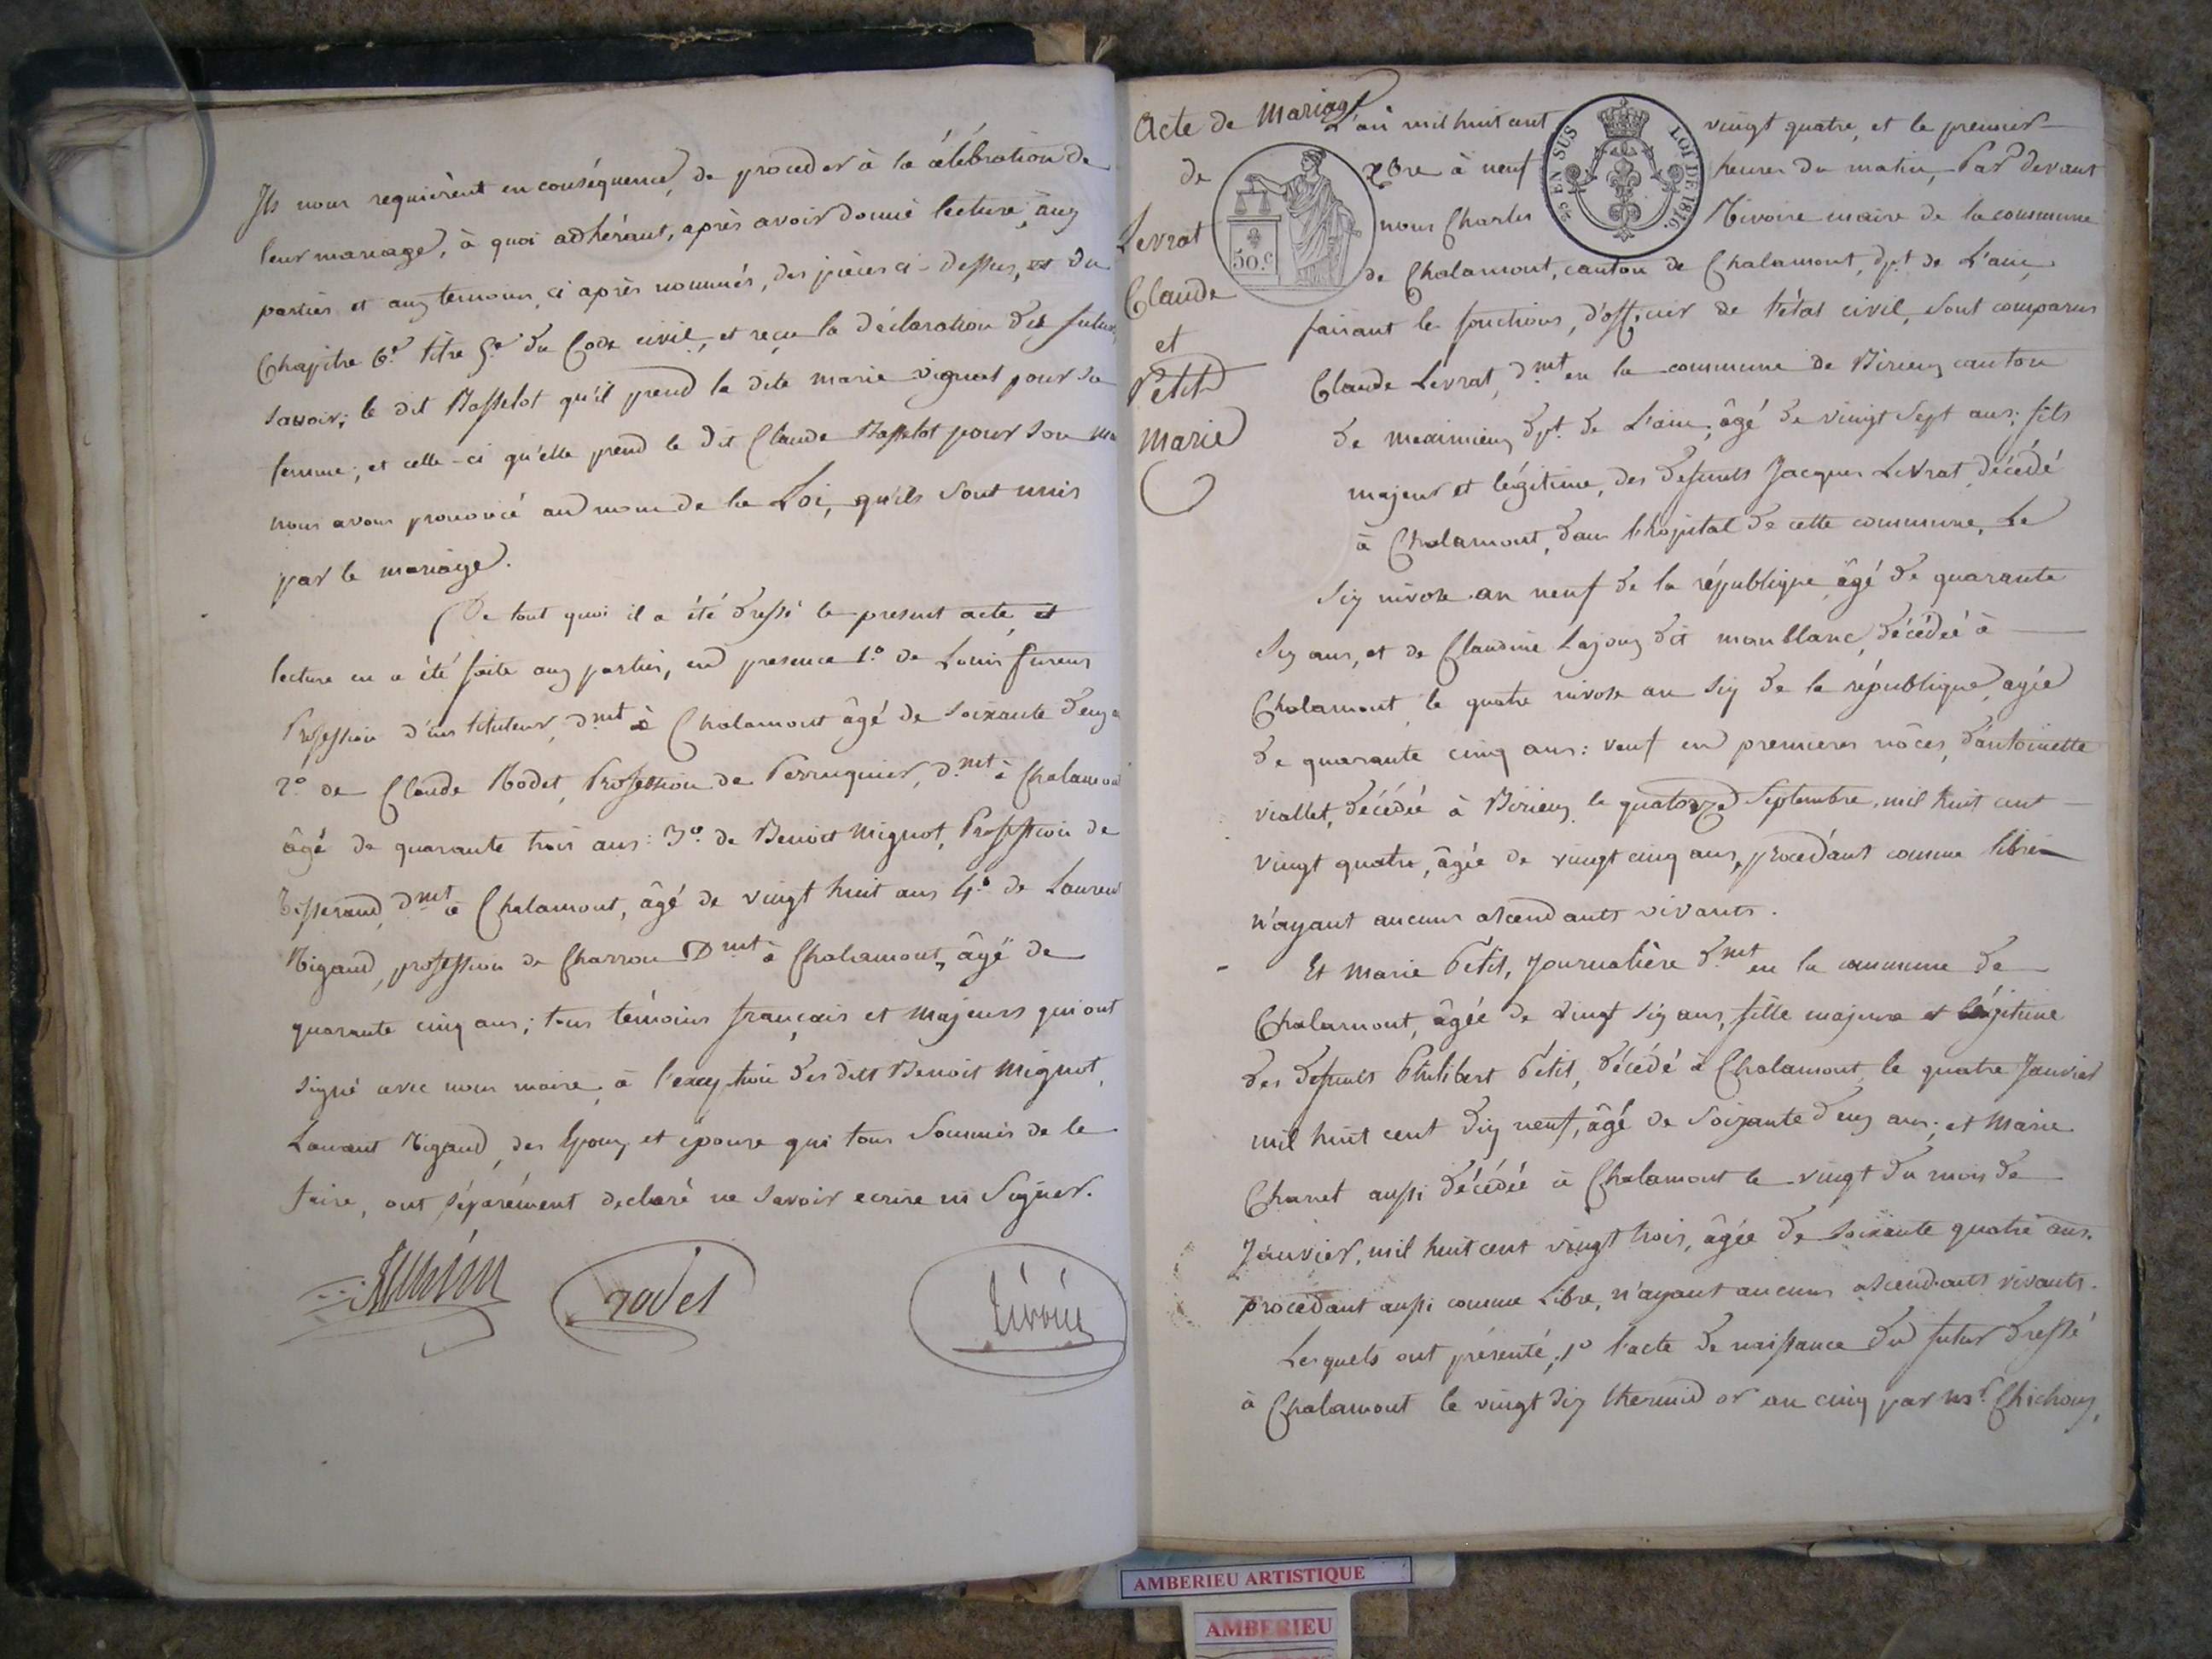 Ils nous requièrent en conséquence, de proceder à la célébration de
leur mariage, à quoi adhérant, après avoir donné lecture, aux
parties et aux temoins, ci après nommés, des pièces ci-dessus, et du
Chapitre 6e titre 5e du Code civil, et reçu la déclaration des futurs,
savoir; le dit Basselot qu'il prend la dite marie vignat pour sa
femme; et celle-ci qu'elle prend le dit Claude Basselot pour son ma
nous avons prononcé au nom de la Loi, qu'ils sont unis
par le mariage.
De tout quoi il a été dressé le present acte, et
lecture en a été faite aux parties, en presence 1.o de Louis
Profession d'instituteur, d.mt à Chalamont âgé de soixante deux a
2o de Claude Rodet, Profession de Perruquier, d.mt à Chalamont
âgé de quarante trois ans: 3.o de Benoit Mignot, Profession de
Tisserand, d.mt à Chalamont, âgé de vingt huit ans 4.o de Laurent
Rigaud, profession de Charron D.mt à Chalamont, âgé de
quarante cinq ans; tous témoins français et majeurs qui ont
signé avec nous maire, à l'exception des dits Benoit Mignot,
Laurant Rigaud, des Epoux et épouse qui tous sommés de le
faire, ont séparément declaré ne savoir ecrire ni signer.
rodet
Acte de Mariage
de
Levrat
Claude
et
Petit
marie
50.c
EN SUS
LOI DE 1816.
L'an mil huit cent vingt quatre, et le premier
xbre à neuf heures du matin, Par devant
nous Charles Rivoire maire de la commune
de Chalamont, canton de Chalamont, dpt de L'ain,
faisant les fonctions, d'officier de l'état civil, sont comparus
Claude Levrat, d.mt en la commune de Birieux canton
de meximieux dpt. de L'ain, âgé de vingt sept ans; fils
majeur et légitime, des defunts Jacques Levrat, décédé
à Chalamont, dans l'hopital de cette commune, Le
six nivose an neuf de la république, âgé de quarante
six ans, et de Claudine Lajoux dit monblanc, décédée à
Chalamont, le quatre nivose an six de la république, agée
de quarante cinq ans: veuf en premieres nôces, d'antoinette
viallet, décédée à Birieux, le quatorze Septembre, mil huit cent
vingt quatre, âgée de vingt cinq ans, procédant comme libre
n'ayant aucuns ascendants vivants.
Et Marie Petit, Journalière d.mt en la commune de
Chalamont, âgée de vingt six ans, fille majeure et légitime
des defunts Philibert Petit, décédé à Chalamont, le quatre Janvier
mil huit cent dix neuf, âgé de soixante deux ans; et Marie
Chanet aussi décédée à Chalamont le vingt du mois de
Janvier, mil huit cent vingt trois, âgée de soixante quatre ans.
procédant aussi comme Libre, n'ayant aucuns ascendants vivants.
Lesquels ont présenté, 1o l'acte de naissance du futur dressé
à Chalamont le vingt six thermidor an cinq par mr. Chichoux,
AMBERIEU ARTISTIQUE
AMBERIEU